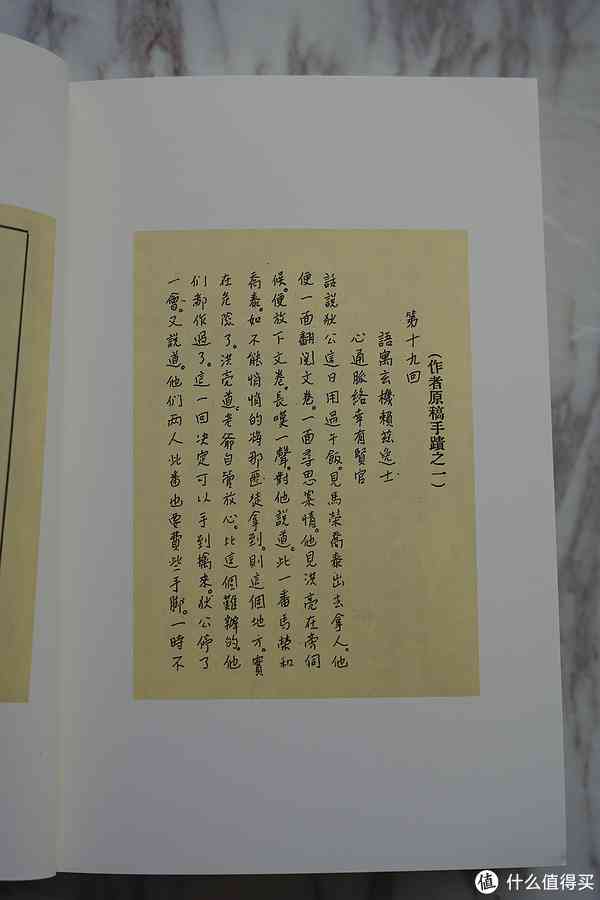 （作者原稿手蹟之一）
第十九回
語寓玄機賴茲逸士
心通脈絡幸有賢官
話說狄公這日用過午飯。見馬榮喬泰出去拿人。他
便一面翻閱文卷。一面尋思案情。他見洪亮在旁伺
候。便放下文卷。長嘆一聲。對他說道。此一番馬榮和
喬泰。如不能悄悄的將那匪徒拿到。則這個地方。實
在危險了。洪亮道。老爺自管放心。比這個難辦的。他
们都作過了。這一回決定可以手到擒來。狄公停了
一會。又說道。他們两人此番也要費些手脚。一時不
值 什么值得买